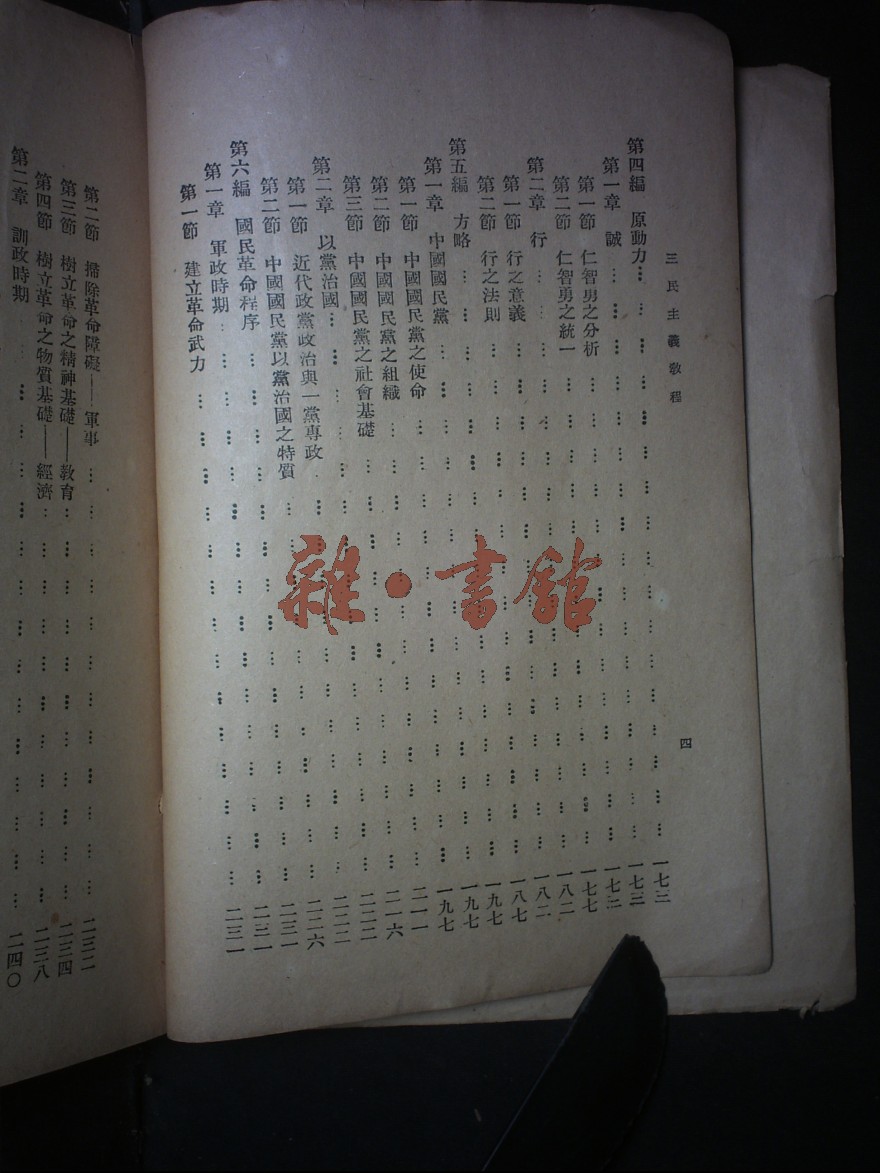 三民主義教程
四
第四編 原動力 …… 一七三
第一章 誠 …… 一七三
第一節 仁智勇之分析 …… 一七三
第二節 仁智勇之統一 …… 一七七
第二章 行 …… 一八二
第一節 行之意義 …… 一八二
第二節 行之法則 …… 一八七
第五編 方略 …… 一九七
第一章 中國國民黨 …… 一九七
第一節 中國國民黨之使命 …… 一九七
第二節 中國國民黨之組織 …… 二一一
第三節 中國國民黨之社會基礎 …… 二一六
第二章 以黨治國 …… 二二二
第一節 近代政黨政治與一黨專政 …… 二二二
第二節 中國國民黨以黨治國之特質 …… 二二六
第六編 國民革命程序 …… 二三一
第一章 軍政時期 …… 二三一
第一節 建立革命武力 …… 二三一
第二節 掃除革命障礙——軍事 …… 二三二
第三節 樹立革命之精神基礎——教育 …… 二三四
第四節 樹立革命之物質基礎——經濟 …… 二三八
第二章 訓政時期 …… 二四〇
雜·書館